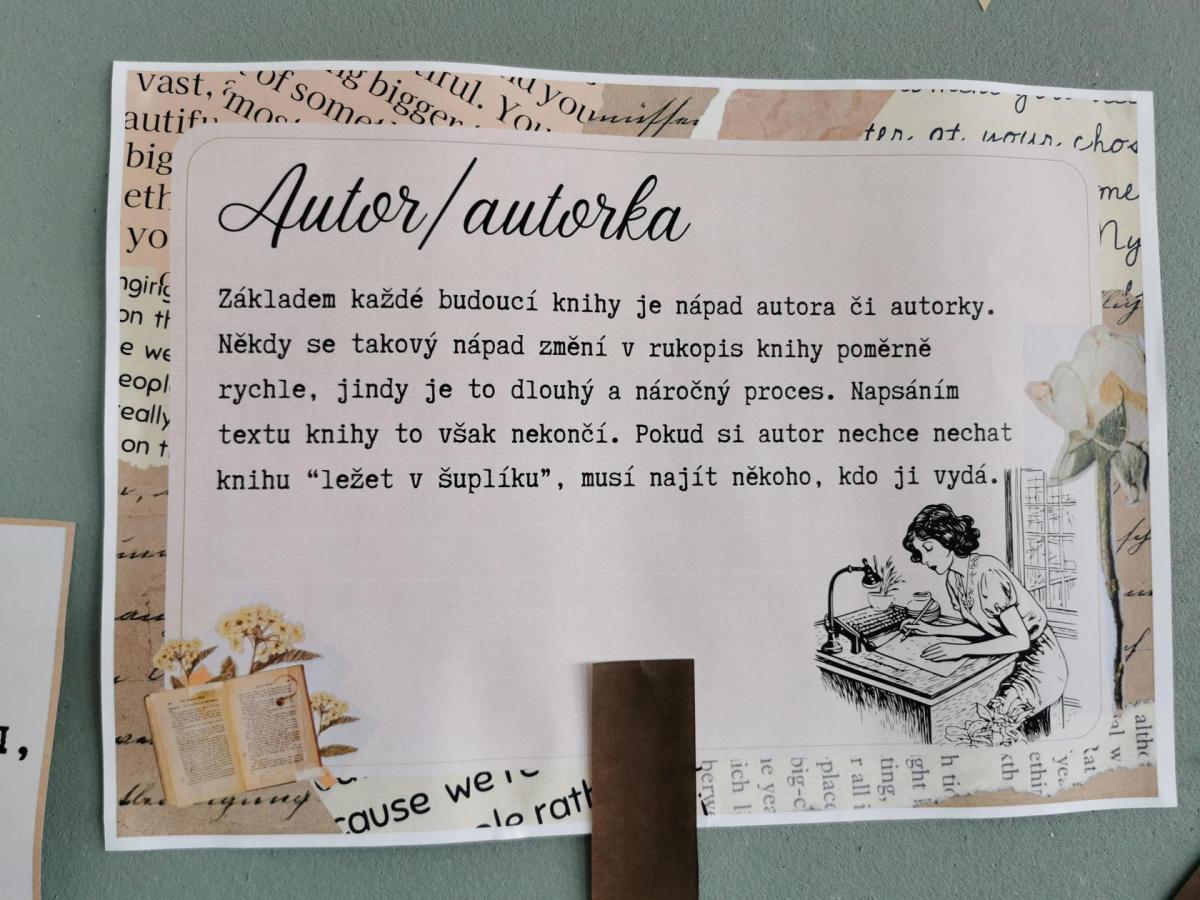 Autor/autorka
Základem každé budoucí knihy je nápad autora či autorky.
Někdy se takový nápad změní v rukopis knihy poměrně
rychle, jindy je to dlouhý a náročný proces. Napsáním
textu knihy to však nekončí. Pokud si autor nechce nechat
knihu “ležet v šuplíku”, musí najít někoho, kdo ji vydá.
vast,
of some
bigger
You
you
big
yo
on
we
really
on
at your
me
My
cause we're